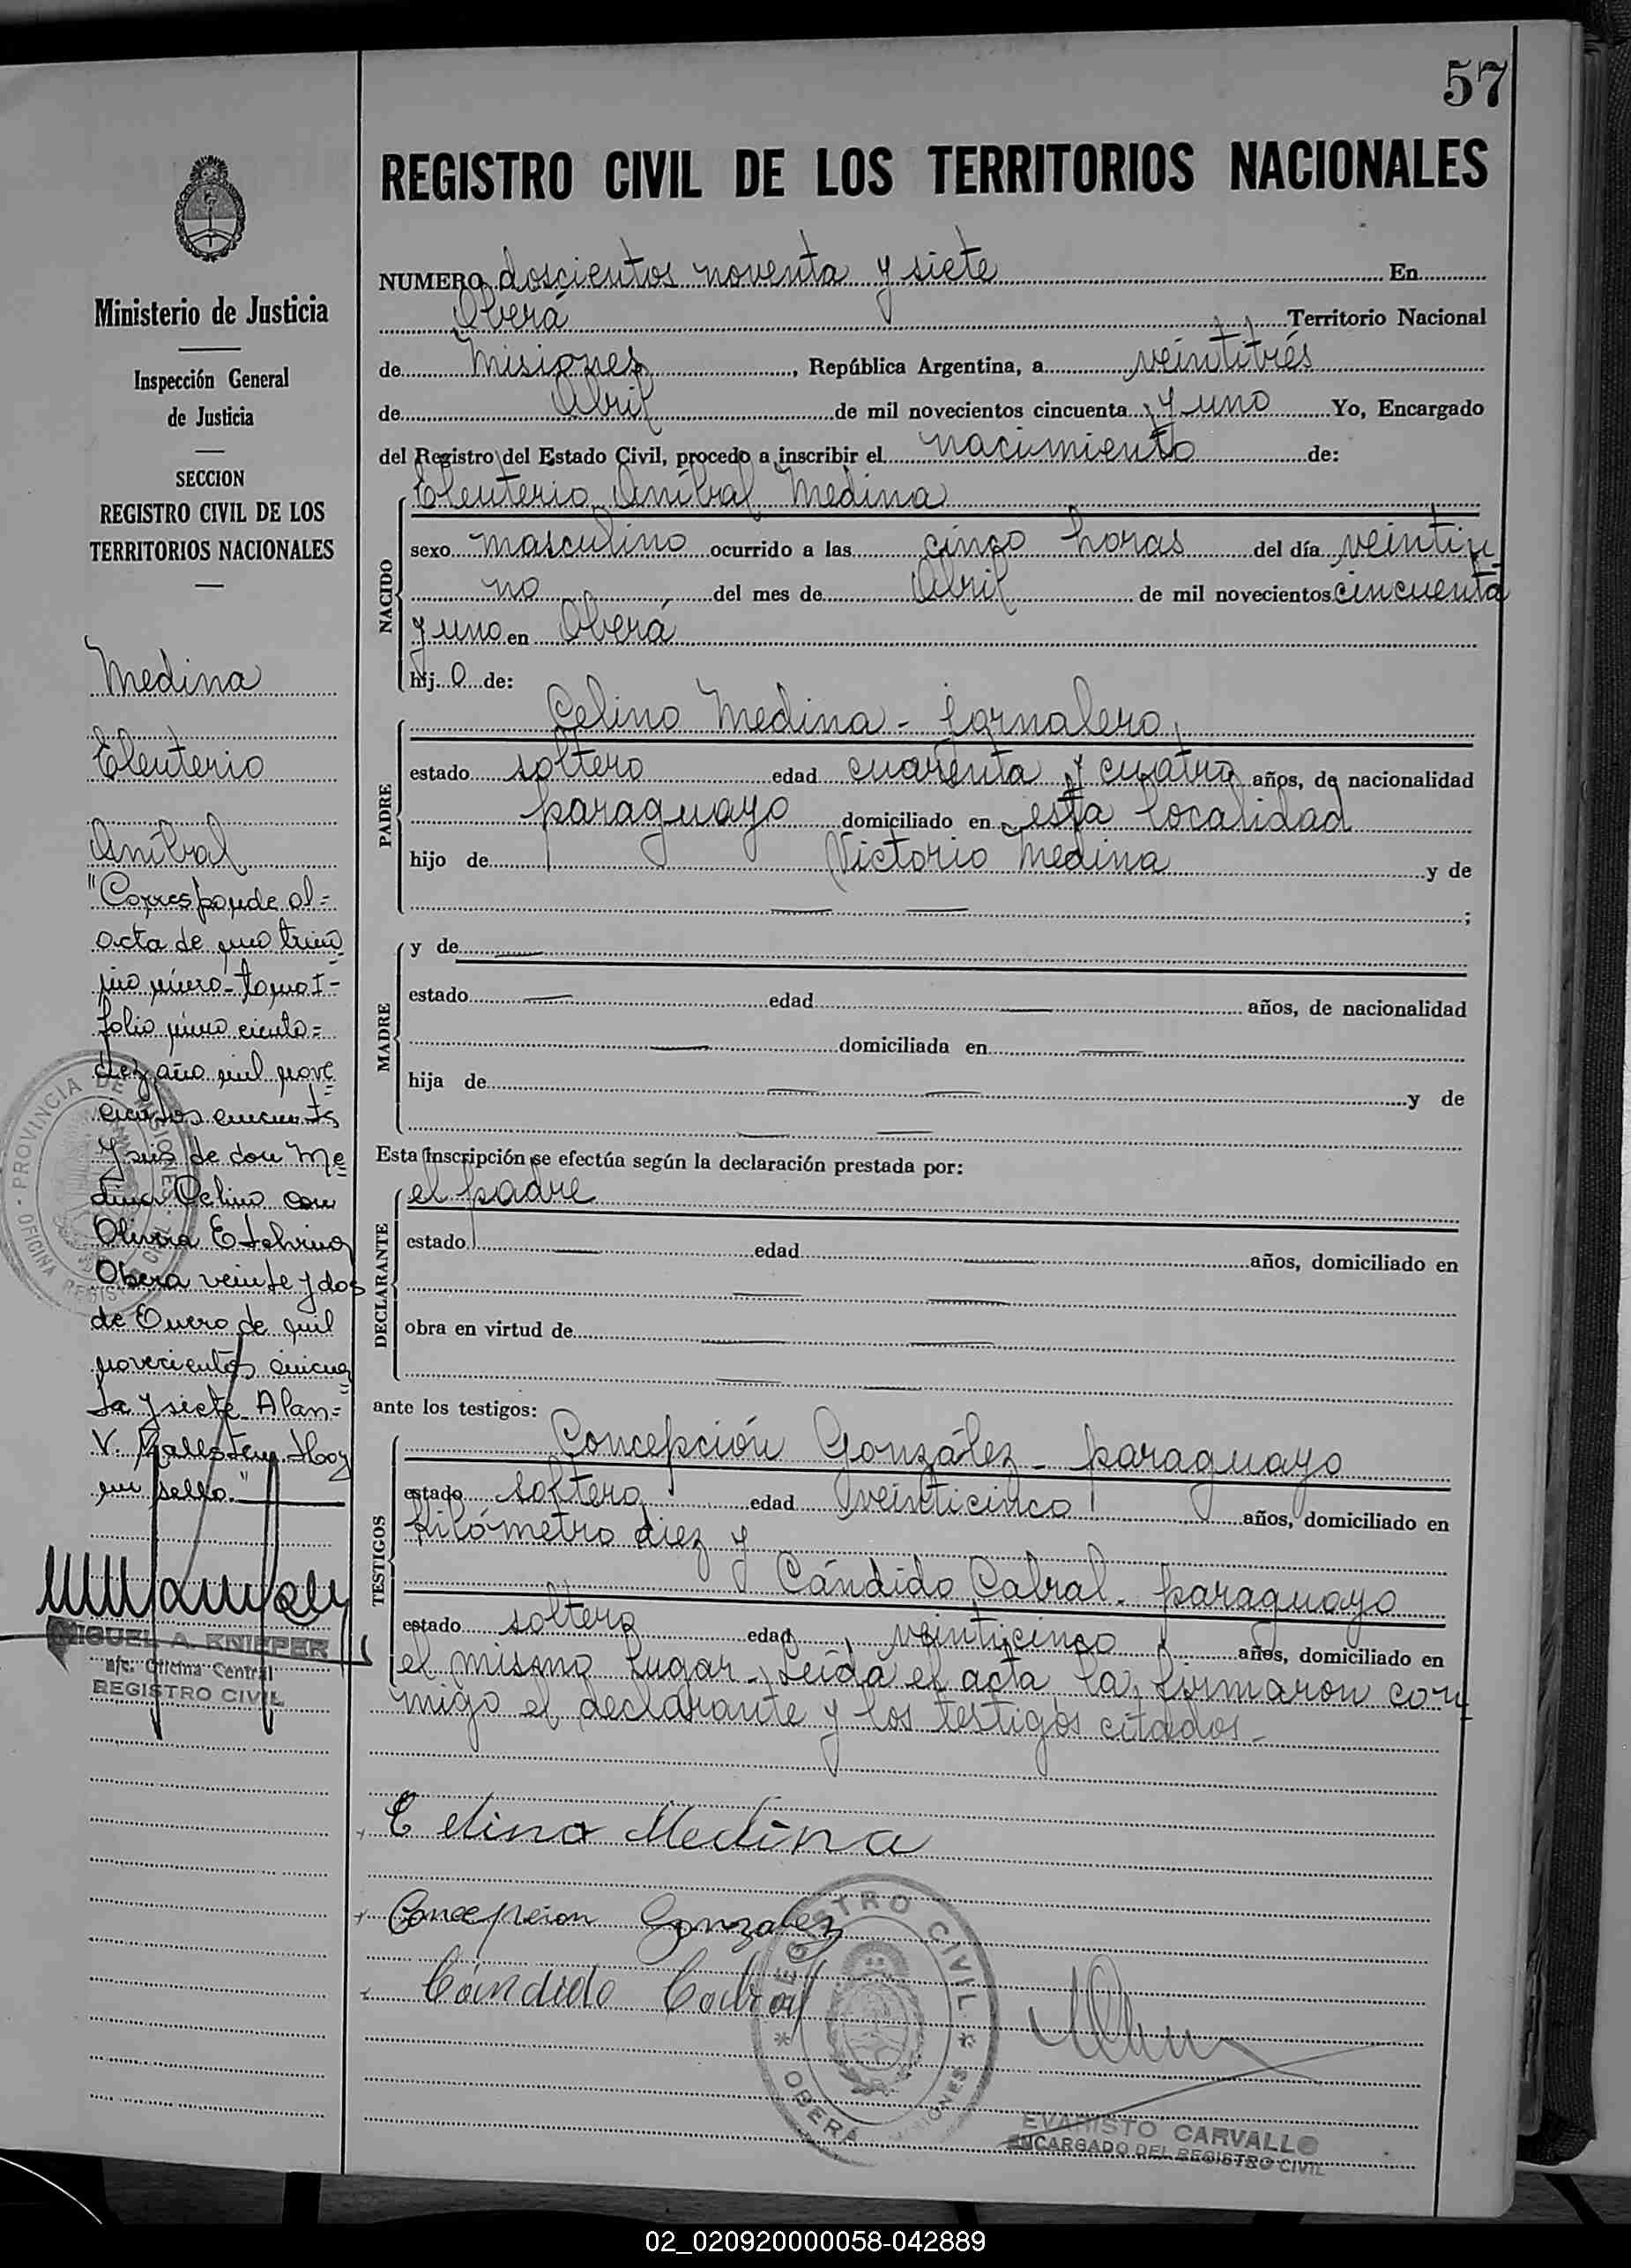 57
REGISTRO CIVIL DE LOS TERRITORIOS NACIONALES
Ministerio de Justicia
Inspección General
de Justicia
SECCION
REGISTRO CIVIL DE LOS
TERRITORIOS NACIONALES
Medina
Eleuterio
Aníbal
"Corresponde al=
acta de
tomo I-
folio ciento=
diez año mil nove
cientos cincuenta
y seis de don Me=
dina Celino con
Olivira Etelvina
Obera veinte y dos
de Enero de mil
novecientos cincuen=
ta y siete Alan=
V. Hay
un sello."
PROVINCIA DE MISIONES
OFICINA
MIGUEL A. KNIEPER
a/c. Oficina Central
REGISTRO CIVIL
NUMERO doscientos noventa y siete En
Oberá Territorio Nacional
de Misiones, República Argentina, a veintitrés
de Abril de mil novecientos cincuenta y uno Yo, Encargado
del Registro del Estado Civil, procedo a inscribir el nacimiento de:
NACIDO
Eleuterio Aníbal Medina
sexo masculino ocurrido a las cinco horas del día veintiu
no del mes de Abril de mil novecientos cincuenta
y uno en Oberá
hij o de:
PADRE
Celino Medina - Jornalero
estado soltero edad cuarenta y cuatro años, de nacionalidad
paraguayo domiciliado en esta localidad
hijo de Victorio Medina y de
;
MADRE
y de
estado edad años, de nacionalidad
domiciliada en
hija de y de
Esta inscripción se efectúa según la declaración prestada por:
DECLARANTE
el padre
estado edad años, domiciliado en
obra en virtud de
ante los testigos:
TESTIGOS
Concepción González - paraguayo
estado soltero edad veinticinco años, domiciliado en
kilómetro diez y
Cándido Cabral - paraguayo
estado soltero edad veinticinco años, domiciliado en
el mismo lugar - Leída el acta la firmaron con
migo el declarante y los testigos citados -
Celino Medina
Concepcion Gonzalez
Cándido Cabral
REGISTRO CIVIL
OBERA MISIONES
EVARISTO CARVALLO
ENCARGADO DEL REGISTRO CIVIL
02_020920000058-042889